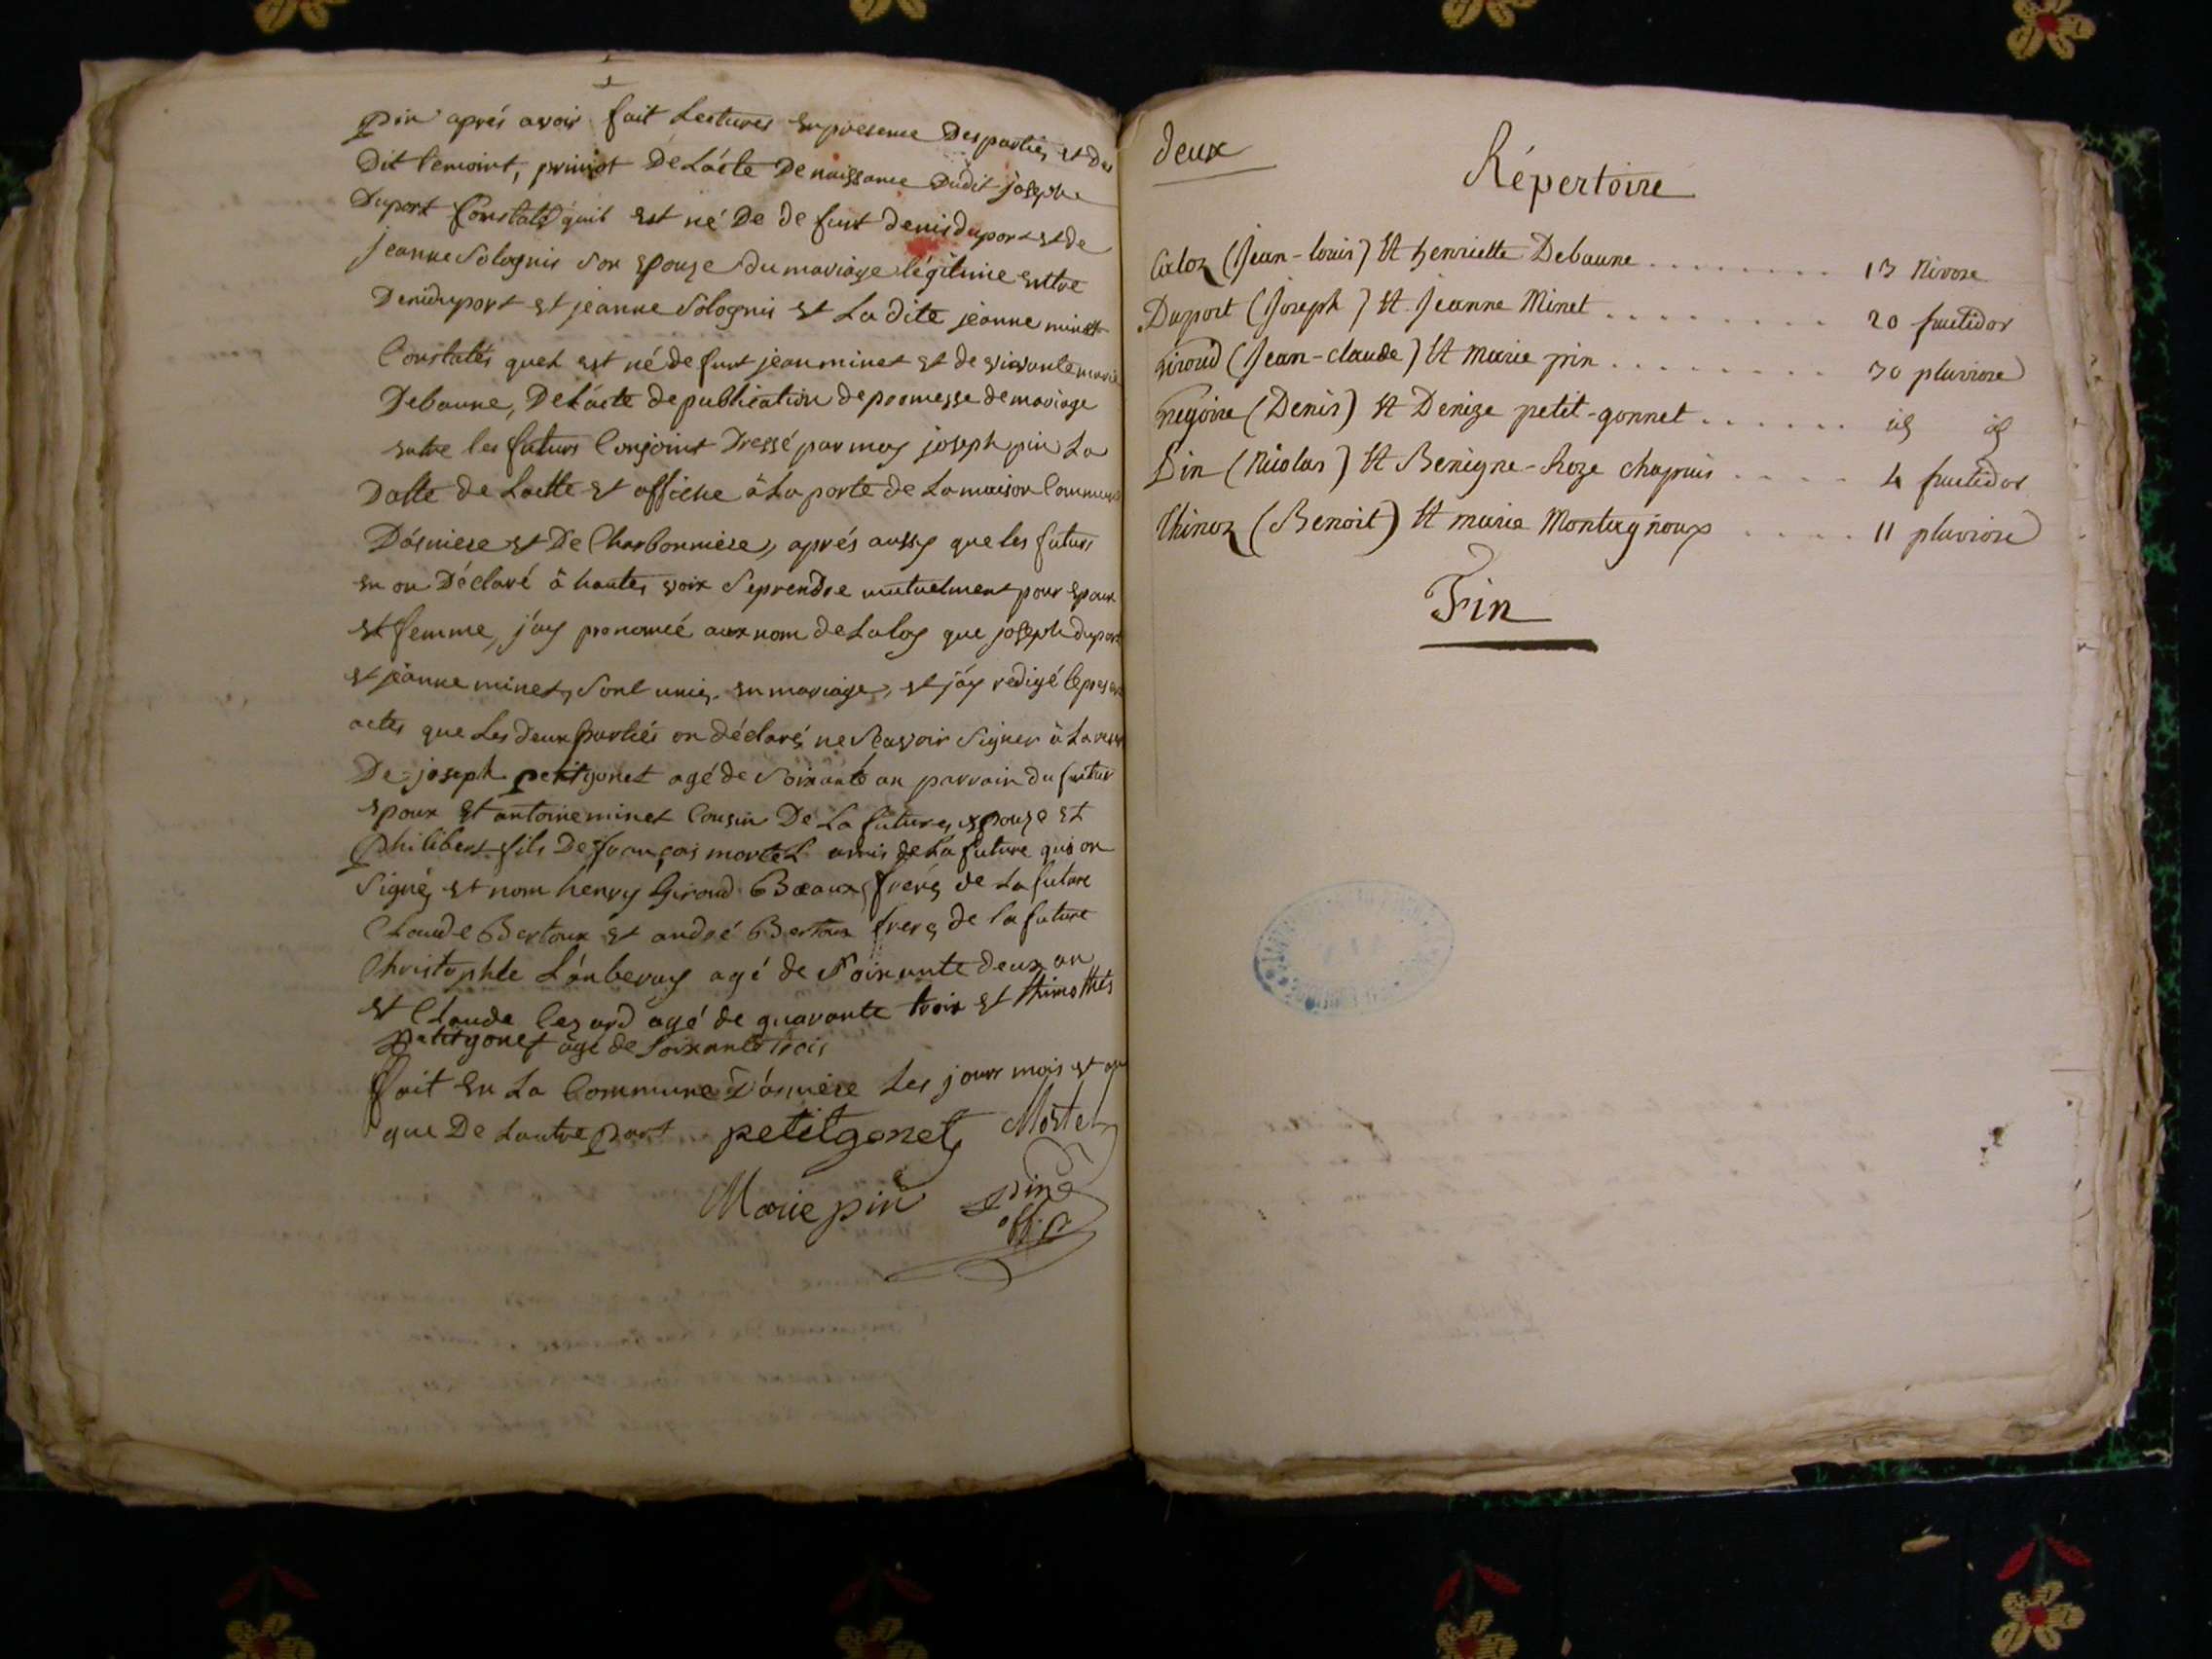 pin après avoir fait Lectures En presence Des parties, et des
Dit temoint, primot De Lácte De naissance Dudit joseph
Duport Constaté quil est né De de funt denis duport et de
jeanne Solognis Son Epouze du mariage légitime Entre
Deni duport et jeanne Solognis et La dite jeanne minet
Constatés quel est né de funt jean minet et de vivante marie
Debaune, De Lácte de publication de promesse de mariage
Entre les futurs Conjoint Dressé par moy joseph pin La
Datte de Laette et affiche à La porte de La maison Commune
Dásniere et De Charbonniere, aprés aussy que les futurs
en on Déclaré à hautes voix Se prendre mutuelment pour Epoux
et femme, j'ay prononcé aux nom de La loy que joseph duport
et jeanne minet, Sont unis, en mariage, et j'áy redigé le present
actes que Les deux parties on déclaré, ne Scavoir Signer à La
De joseph petitgonet agé de Soixante an parrain du futur
Epoux et antoine minet Cousin De La future, Epouze et
philibert fils De françois mortel amis de La future qui on
Signé, et nom henry Giroud Beaux frere, de La future
Claude Bertoux et andré Bertoux frere, de la future
Christophle Lánberay agé de Soixante deux an
et Claude Cesard agé de quarante trois et thimothés
petitgonet âgé de Soixante trois
fait En La Commune D'ásniere Les jour mois et an
que De Lautre part petitgonet Mortel
Marie pin pin
off. p.
deux
Répertoire
Caloz (Jean-louis) et henriette Debaune ........ 13 Nivose
Duport (Joseph) et Jeanne Minet ........ 20 fructidor
giroud (Jean-claude) et marie pin ........ 30 pluviose
gregoire (Denis) et Denize petit-gonnet ...... id id
Pin (Nicolas) et Benigne-Roze chapuis ..... 4 fructidor
Thinoz (Benoit) et marie Montagnoux ..... 11 pluviose
Fin